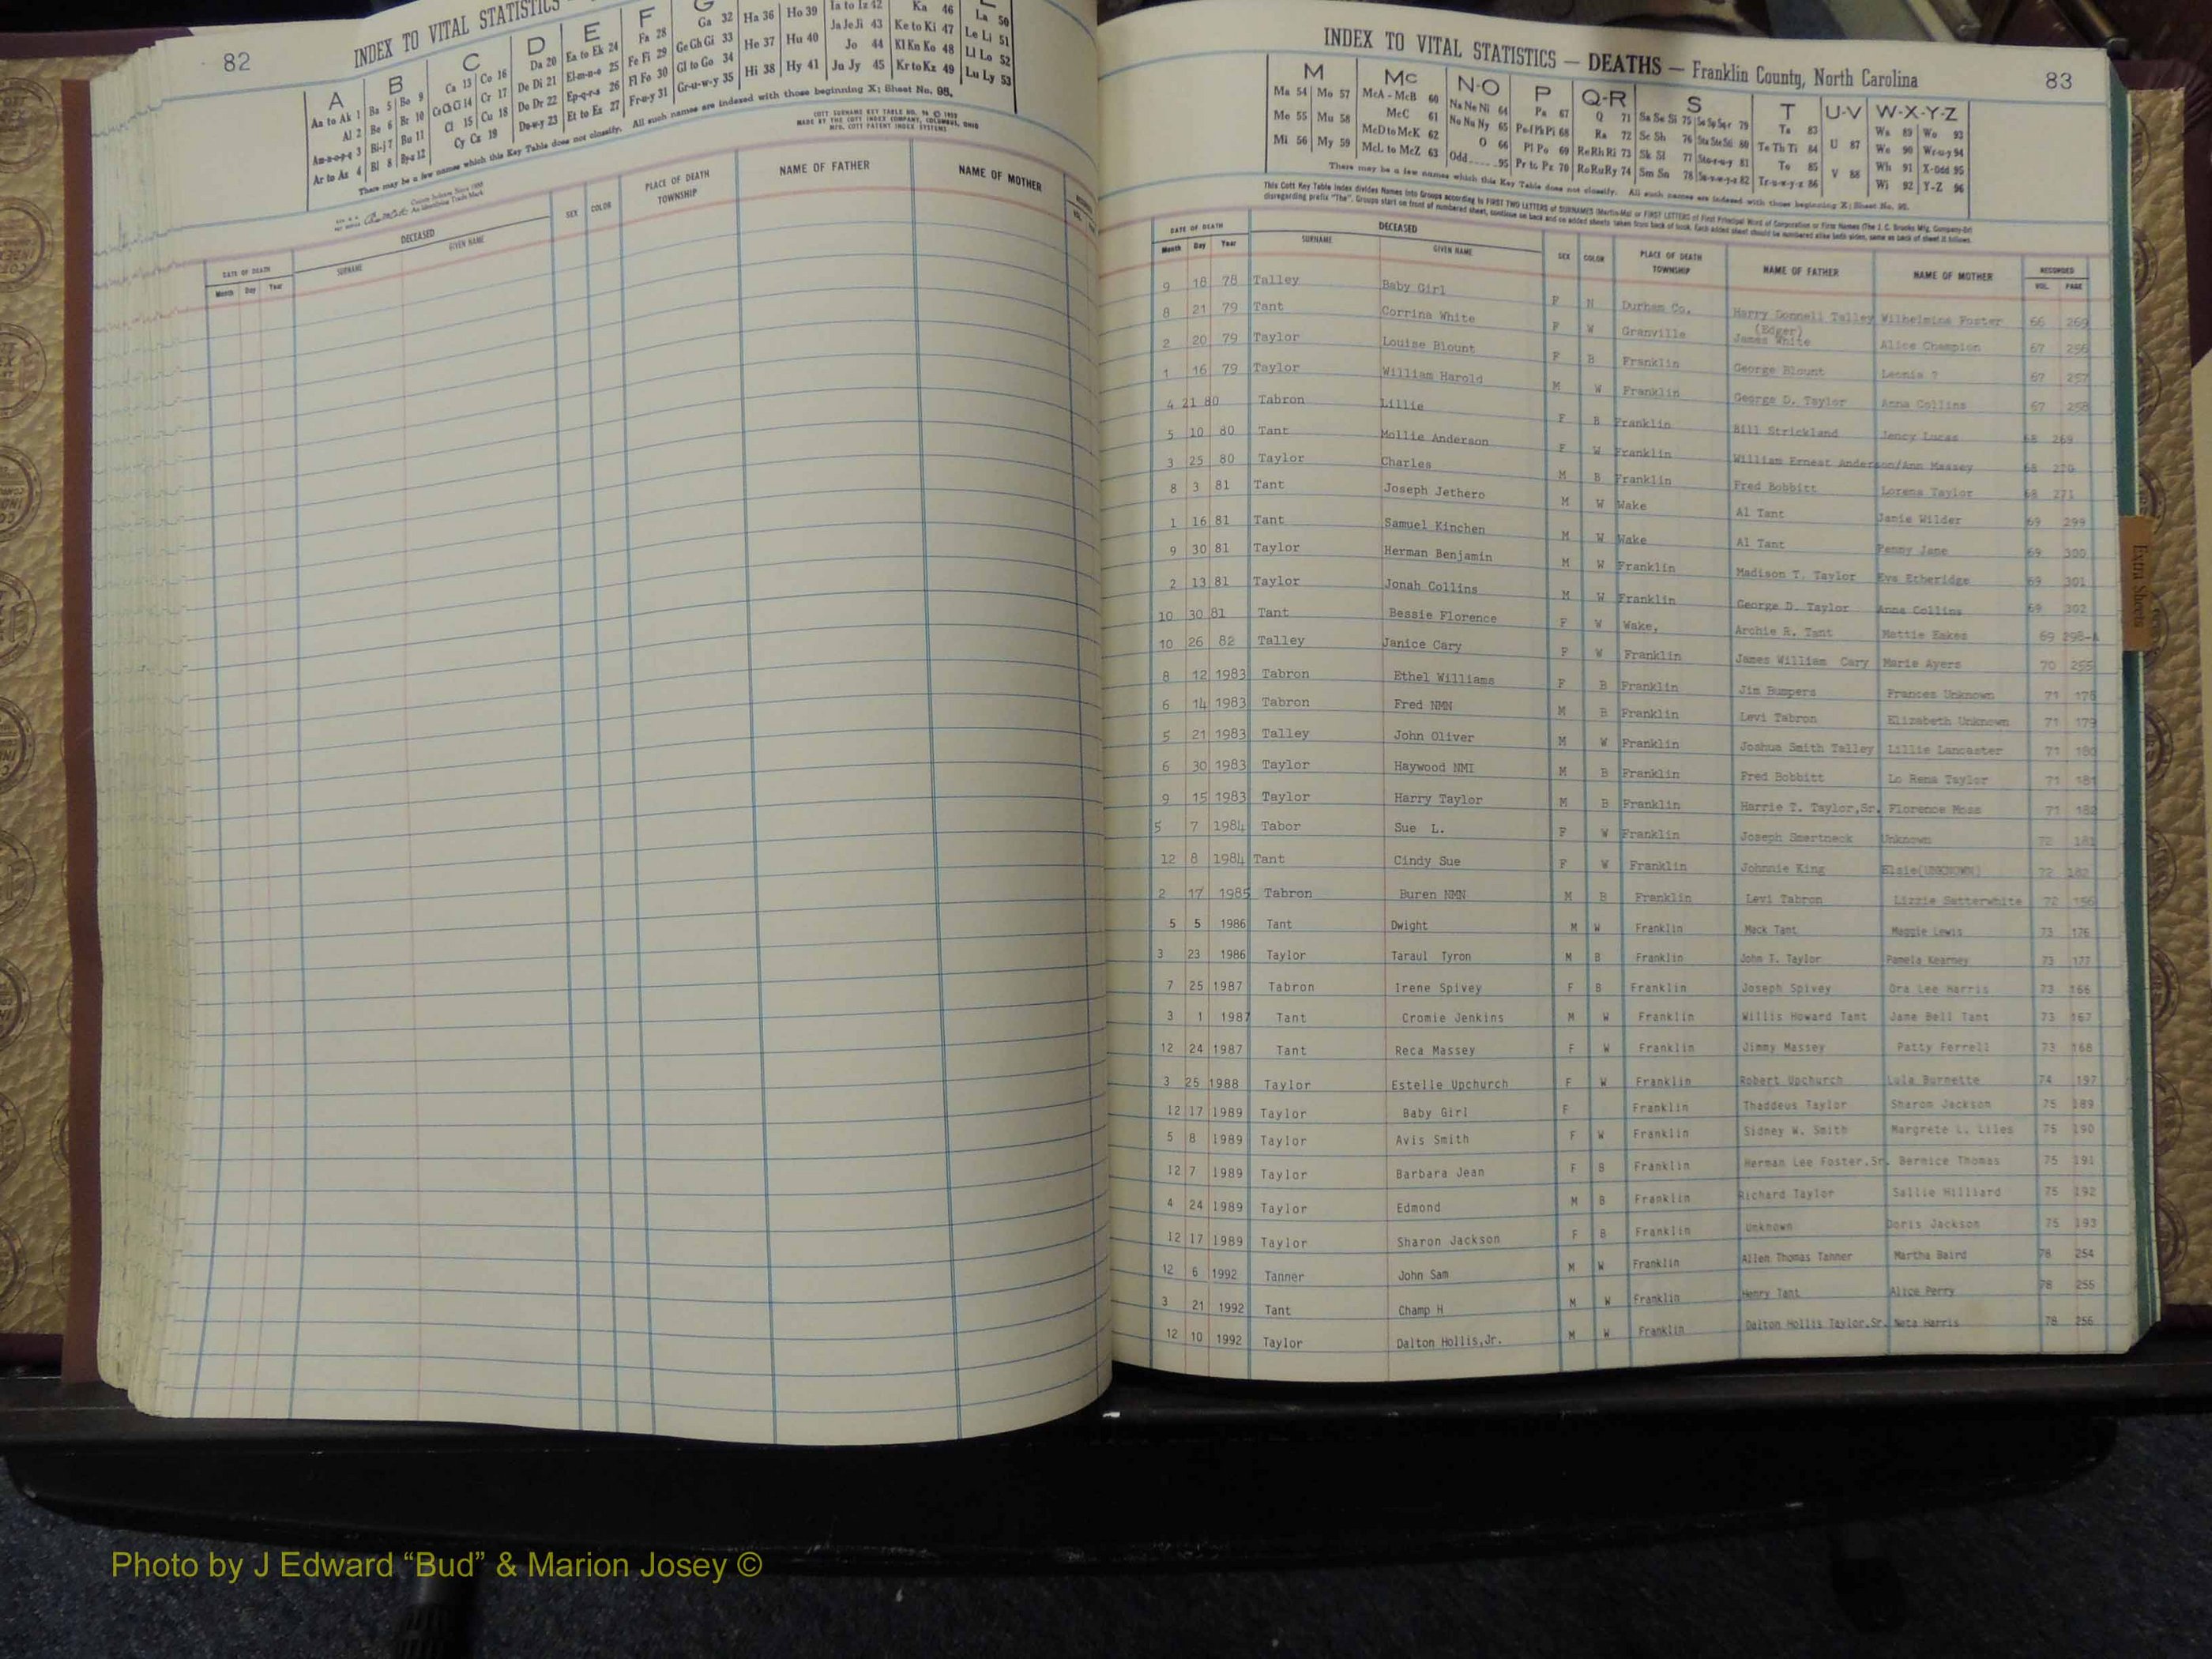 82
INDEX TO VITAL STATISTICS
A B C D E F G
Aa to Ak 1 Ba 5 Bo 9 Ca 13 Co 16 Da 20 Ea to Ek 24 Fa 28 Ga 32 Ha 36 Ho 39 Ia to Iz 42 Ka 46 La 50
Al 2 Be 6 Br 10 Ce Ch Ci 14 Cr 17 De Di 21 El-m-n-o 25 Fe Fi 29 Ge Gh Gi 33 He 37 Hu 40 Ja Je Ji 43 Ke to Ki 47 Le Li 51
Am-n-o-p-q 3 Bi-j 7 Bu 11 Cl 15 Cu 18 Do Dr 22 Ep-q-r-s 26 Fl Fo 30 Gl to Go 34 Hi 38 Hy 41 Jo 44 Kl Kn Ko 48 Ll Lo 52
Ar to Az 4 Bl 8 By-z 12 Cy Cz 19 Du-w-y 23 Et to Ez 27 Fr-u-y 31 Gr-u-w-y 35 Ju Jy 45 Kr to Kz 49 Lu Ly 53
There may be a few names which this Key Table does not classify. All such names are indexed with those beginning X; Sheet No. 95.
COTT SURNAME KEY TABLE
MADE BY THE COTT INDEX COMPANY, COLUMBUS, OHIO
MFG. COTT PATENT INDEX SYSTEMS
DATE OF DEATH DECEASED SEX COLOR PLACE OF DEATH TOWNSHIP NAME OF FATHER NAME OF MOTHER
Month Day Year SURNAME GIVEN NAME
INDEX TO VITAL STATISTICS — DEATHS — Franklin County, North Carolina
83
M Mc N-O P Q-R S T U-V W-X-Y-Z
Ma 54 Mo 57 McA - McB 60 Na Ne Ni 64 Pa 67 Q 71 Sa Se Si 75 Sp Sq 79 Ta 83 U 87 Wa 89 Wo 93
Me 55 Mu 58 McC 61 No Nu Ny 65 Pe Pf Ph Pi 68 Ra 72 Sc Sh 76 Sta Ste Sti 80 Te Th Ti 84 V 88 We 90 Wr-u-y 94
Mi 56 My 59 McD to McK 62 O 66 Pl Po 69 Re Rh Ri 73 Sk Sl 77 Sto-r-u-y 81 To 85 Wh 91 X-Odd 95
McL to McZ 63 Odd 95 Pr to Pz 70 Ro Ru Ry 74 Sm Sn 78 Su-v-w-y-z 82 Tr-u-w-y-z 86 Wi 92 Y-Z 96
There may be a few names which this Key Table does not classify. All such names are indexed with those beginning X; Sheet No. 95.
This Cott Key Table Index divides Names into Groups according to FIRST TWO LETTERS of SURNAMES (Martin-Ma) or FIRST LETTERS of First Principal Word of Corporation or Firm Names (The J. C. Brooks Mfg. Company-Br)
disregarding prefix "The". Groups start on front of numbered sheet, continue on back and on added sheets taken from back of book. Each added sheet should be numbered alike both sides, same as back of sheet it follows.
DATE OF DEATH DECEASED SEX COLOR PLACE OF DEATH TOWNSHIP NAME OF FATHER NAME OF MOTHER RECORDED
Month Day Year SURNAME GIVEN NAME VOL. PAGE
9 18 78 Talley Baby Girl F N Durham Co. Harry Donnell Talley Wilhelmina Foster 66 269
8 21 79 Tant Corrina White F W Granville (Edger) James White Alice Champion 67 256
2 20 79 Taylor Louise Blount F B Franklin George Blount Leonia ? 67 257
1 16 79 Taylor William Harold M W Franklin George D. Taylor Anna Collins 67 258
4 21 80 Tabron Lillie F B Franklin Bill Strickland Jency Lucas 68 269
5 10 80 Tant Mollie Anderson F W Franklin William Ernest Anderson/Ann Massey 68 270
3 25 80 Taylor Charles M B Franklin Fred Bobbitt Lorena Taylor 68 271
8 3 81 Tant Joseph Jethero M W Wake Al Tant Janie Wilder 69 299
1 16 81 Tant Samuel Kinchen M W Wake Al Tant Penny Jane 69 300
9 30 81 Taylor Herman Benjamin M W Franklin Madison T. Taylor Eva Etheridge 69 301
2 13 81 Taylor Jonah Collins M W Franklin George D. Taylor Anna Collins 69 302
10 30 81 Tant Bessie Florence F W Wake, Archie R. Tant Mattie Eakes 69 298-A
10 26 82 Talley Janice Cary F W Franklin James William Cary Marie Ayers 70 255
8 12 1983 Tabron Ethel Williams F B Franklin Jim Bumpers Frances Unknown 71 178
6 14 1983 Tabron Fred NMN M B Franklin Levi Tabron Elizabeth Unknown 71 179
5 21 1983 Talley John Oliver M W Franklin Joshua Smith Talley Lillie Lancaster 71 180
6 30 1983 Taylor Haywood NMI M B Franklin Fred Bobbitt Lo Rena Taylor 71 181
9 15 1983 Taylor Harry Taylor M B Franklin Harrie T. Taylor,Sr. Florence Moss 71 182
5 7 1984 Tabor Sue L. F W Franklin Joseph Smartneck Unknown 72 181
12 8 1984 Tant Cindy Sue F W Franklin Johnnie King Elsie(UNKNOWN) 72 182
2 17 1985 Tabron Buren NMN M B Franklin Levi Tabron Lizzie Satterwhite 72 156
5 5 1986 Tant Dwight M W Franklin Mack Tant Maggie Lewis 73 176
3 23 1986 Taylor Taraul Tyron M B Franklin John T. Taylor Pamela Kearney 73 177
7 25 1987 Tabron Irene Spivey F B Franklin Joseph Spivey Ora Lee Harris 73 166
3 1 1987 Tant Cromie Jenkins M W Franklin Willis Howard Tant Jane Bell Tant 73 167
12 24 1987 Tant Reca Massey F W Franklin Jimmy Massey Patty Ferrell 73 168
3 25 1988 Taylor Estelle Upchurch F W Franklin Robert Upchurch Lula Burnette 74 197
12 17 1989 Taylor Baby Girl F Franklin Thaddeus Taylor Sharon Jackson 75 189
5 8 1989 Taylor Avis Smith F W Franklin Sidney W. Smith Margrete L. Liles 75 190
12 7 1989 Taylor Barbara Jean F B Franklin Herman Lee Foster,Sr. Bernice Thomas 75 191
4 24 1989 Taylor Edmond M B Franklin Richard Taylor Sallie Hilliard 75 192
12 17 1989 Taylor Sharon Jackson F B Franklin Unknown Doris Jackson 75 193
12 6 1992 Tanner John Sam M W Franklin Allen Thomas Tanner Martha Baird 78 254
3 21 1992 Tant Champ H M W Franklin Henry Tant Alice Perry 78 255
12 10 1992 Taylor Dalton Hollis,Jr. M W Franklin Dalton Hollis Taylor,Sr. Neta Harris 78 256
Extra Sheets
Photo by J Edward “Bud” & Marion Josey ©